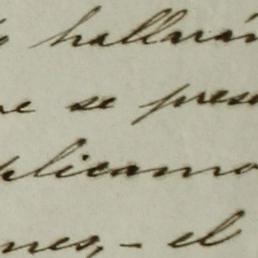 hallarán
se prese
plicamo
nes,- el